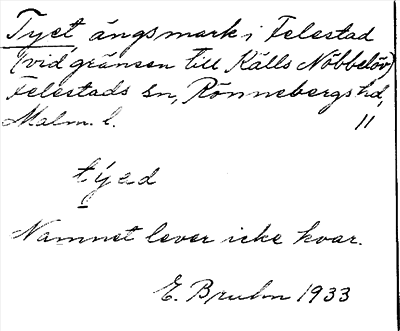 Tyet, ängsmark i Felestad
(vid gränsen till Källs Nöbbelöv)
Felestads sn, Rönnebergs hd,
Malm. l. 11
týed
Namnet lever icke kvar.
E. Bruhn 1933